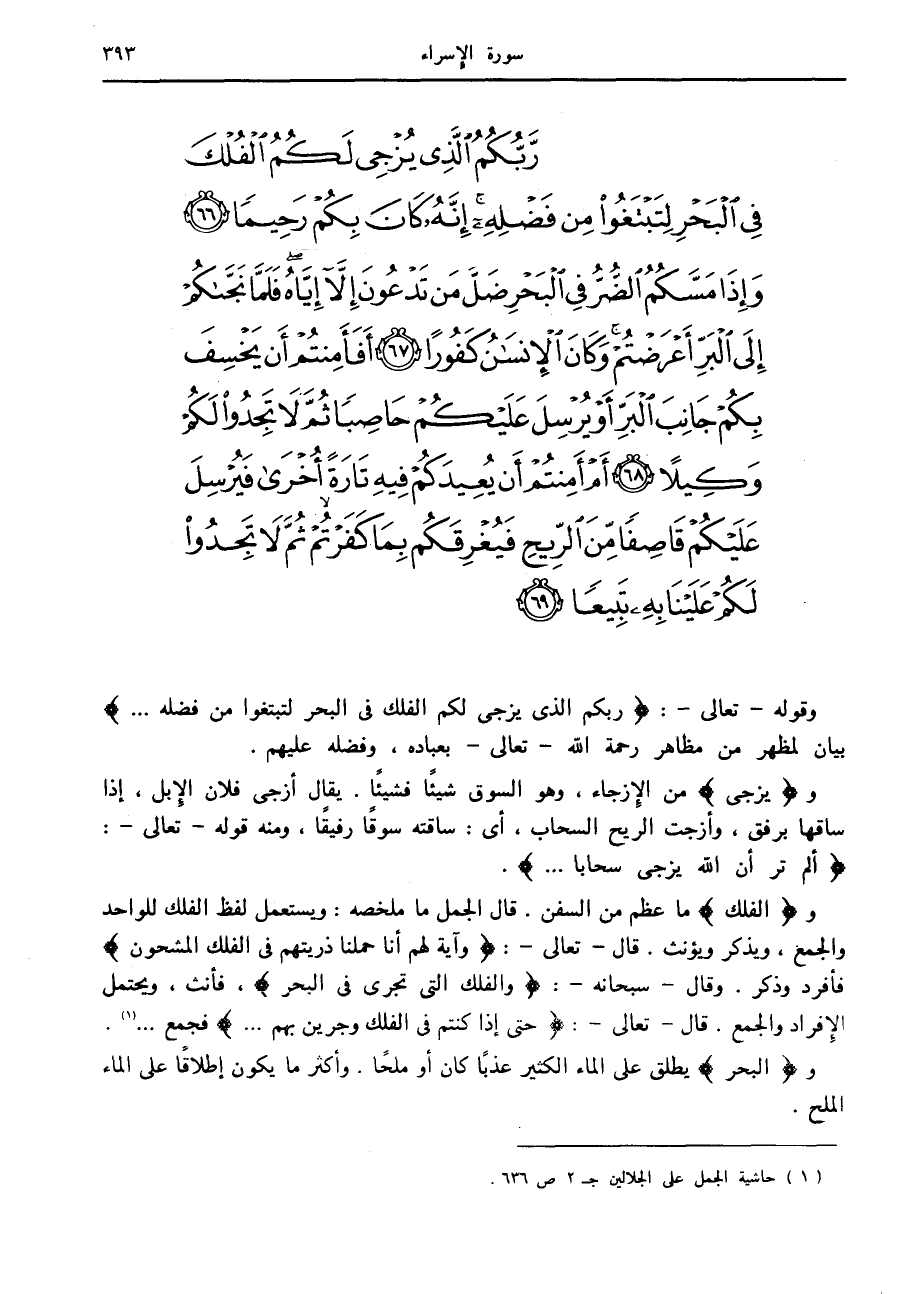 سورة الإسراء ٣٩٣
رَّبُّكُمُ ٱلَّذِى يُزْجِى لَكُمُ ٱلْفُلْكَ
فِى ٱلْبَحْرِ لِتَبْتَغُوا۟ مِن فَضْلِهِۦٓ ۚ إِنَّهُۥ كَانَ بِكُمْ رَحِيمًا ﴿٦٦﴾
وَإِذَا مَسَّكُمُ ٱلضُّرُّ فِى ٱلْبَحْرِ ضَلَّ مَن تَدْعُونَ إِلَّآ إِيَّاهُ ۖ فَلَمَّا نَجَّىٰكُمْ
إِلَى ٱلْبَرِّ أَعْرَضْتُمْ ۚ وَكَانَ ٱلْإِنسَـٰنُ كَفُورًا ﴿٦٧﴾ أَفَأَمِنتُمْ أَن يَخْسِفَ
بِكُمْ جَانِبَ ٱلْبَرِّ أَوْ يُرْسِلَ عَلَيْكُمْ حَاصِبًا ثُمَّ لَا تَجِدُوا۟ لَكُمْ
وَكِيلًا ﴿٦٨﴾ أَمْ أَمِنتُمْ أَن يُعِيدَكُمْ فِيهِ تَارَةً أُخْرَىٰ فَيُرْسِلَ
عَلَيْكُمْ قَاصِفًا مِّنَ ٱلرِّيحِ فَيُغْرِقَكُم بِمَا كَفَرْتُمْ ۙ ثُمَّ لَا تَجِدُوا۟
لَكُمْ عَلَيْنَا بِهِۦ تَبِيعًا ﴿٦٩﴾
وقوله - تعالى - : ﴿ ربكم الذى يزجى لكم الفلك فى البحر لتبتغوا من فضله ... ﴾
بيان لمظهر من مظاهر رحمة الله - تعالى - بعباده ، وفضله عليهم .
و ﴿ يزجى ﴾ من الإزجاء ، وهو السوق شيئًا فشيئًا . يقال أزجى فلان الإبل ، إذا
ساقها برفق ، وأزجت الريح السحاب ، أى : ساقته سوقًا رفيقًا ، ومنه قوله - تعالى - :
﴿ ألم تر أن الله يزجى سحابا ... ﴾ .
و ﴿ الفلك ﴾ ما عظم من السفن . قال الجمل ما ملخصه : ويستعمل لفظ الفلك للواحد
والجمع ، ويذكر ويؤنث . قال - تعالى - : ﴿ وآية لهم أنا حملنا ذريتهم فى الفلك المشحون ﴾
فأفرد وذكر . وقال - سبحانه - : ﴿ والفلك التى تجرى فى البحر ﴾ ، فأنث ، ويحتمل
الإفراد والجمع . قال - تعالى - : ﴿ حتى إذا كنتم فى الفلك وجرين بهم ... ﴾ فجمع ...(١) .
و ﴿ البحر ﴾ يطلق على الماء الكثير عذبًا كان أو ملحًا . وأكثر ما يكون إطلاقًا على الماء
الملح .
( ١ ) حاشية الجمل على الجلالين جـ ٢ ص ٦٣٦ .